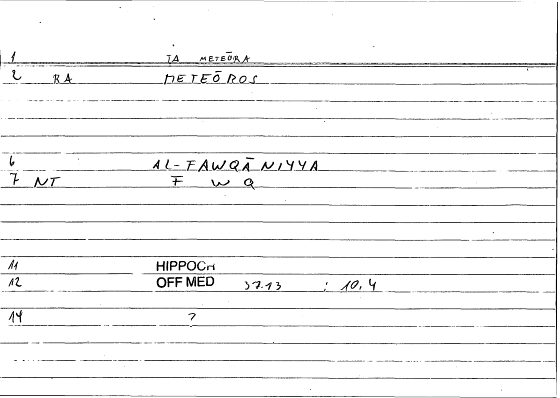 1 TA METEŌRA
2 RA METEŌROS
6 AL-FAWQĀNIYYA
7 NT F W Q
11 HIPPOCR
12 OFF MED 37.13 : 10,4
14 ?